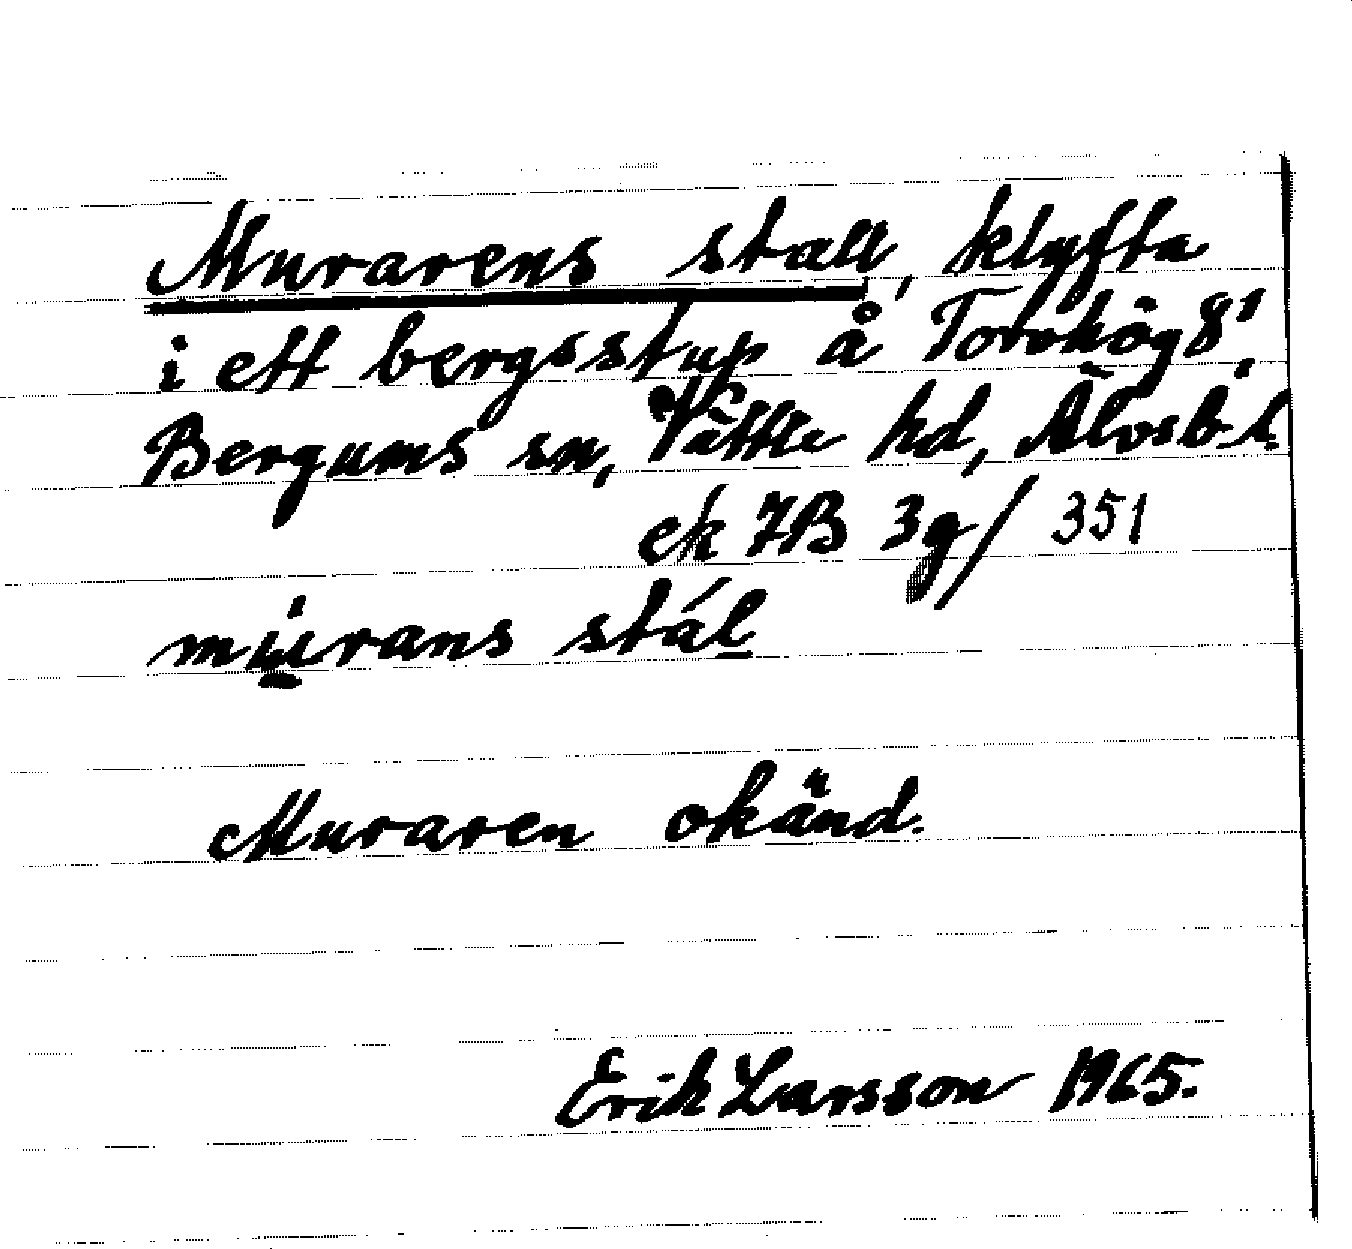 Murarens stall, klyfta
i ett bergsstup å Torvhög 8¹,
Bergums sn, Vättle hd, Älvsb. l.
ek 7B 3g/ 351
mu̲rans stál̲
Muraren okänd.
Erik Larsson 1965.